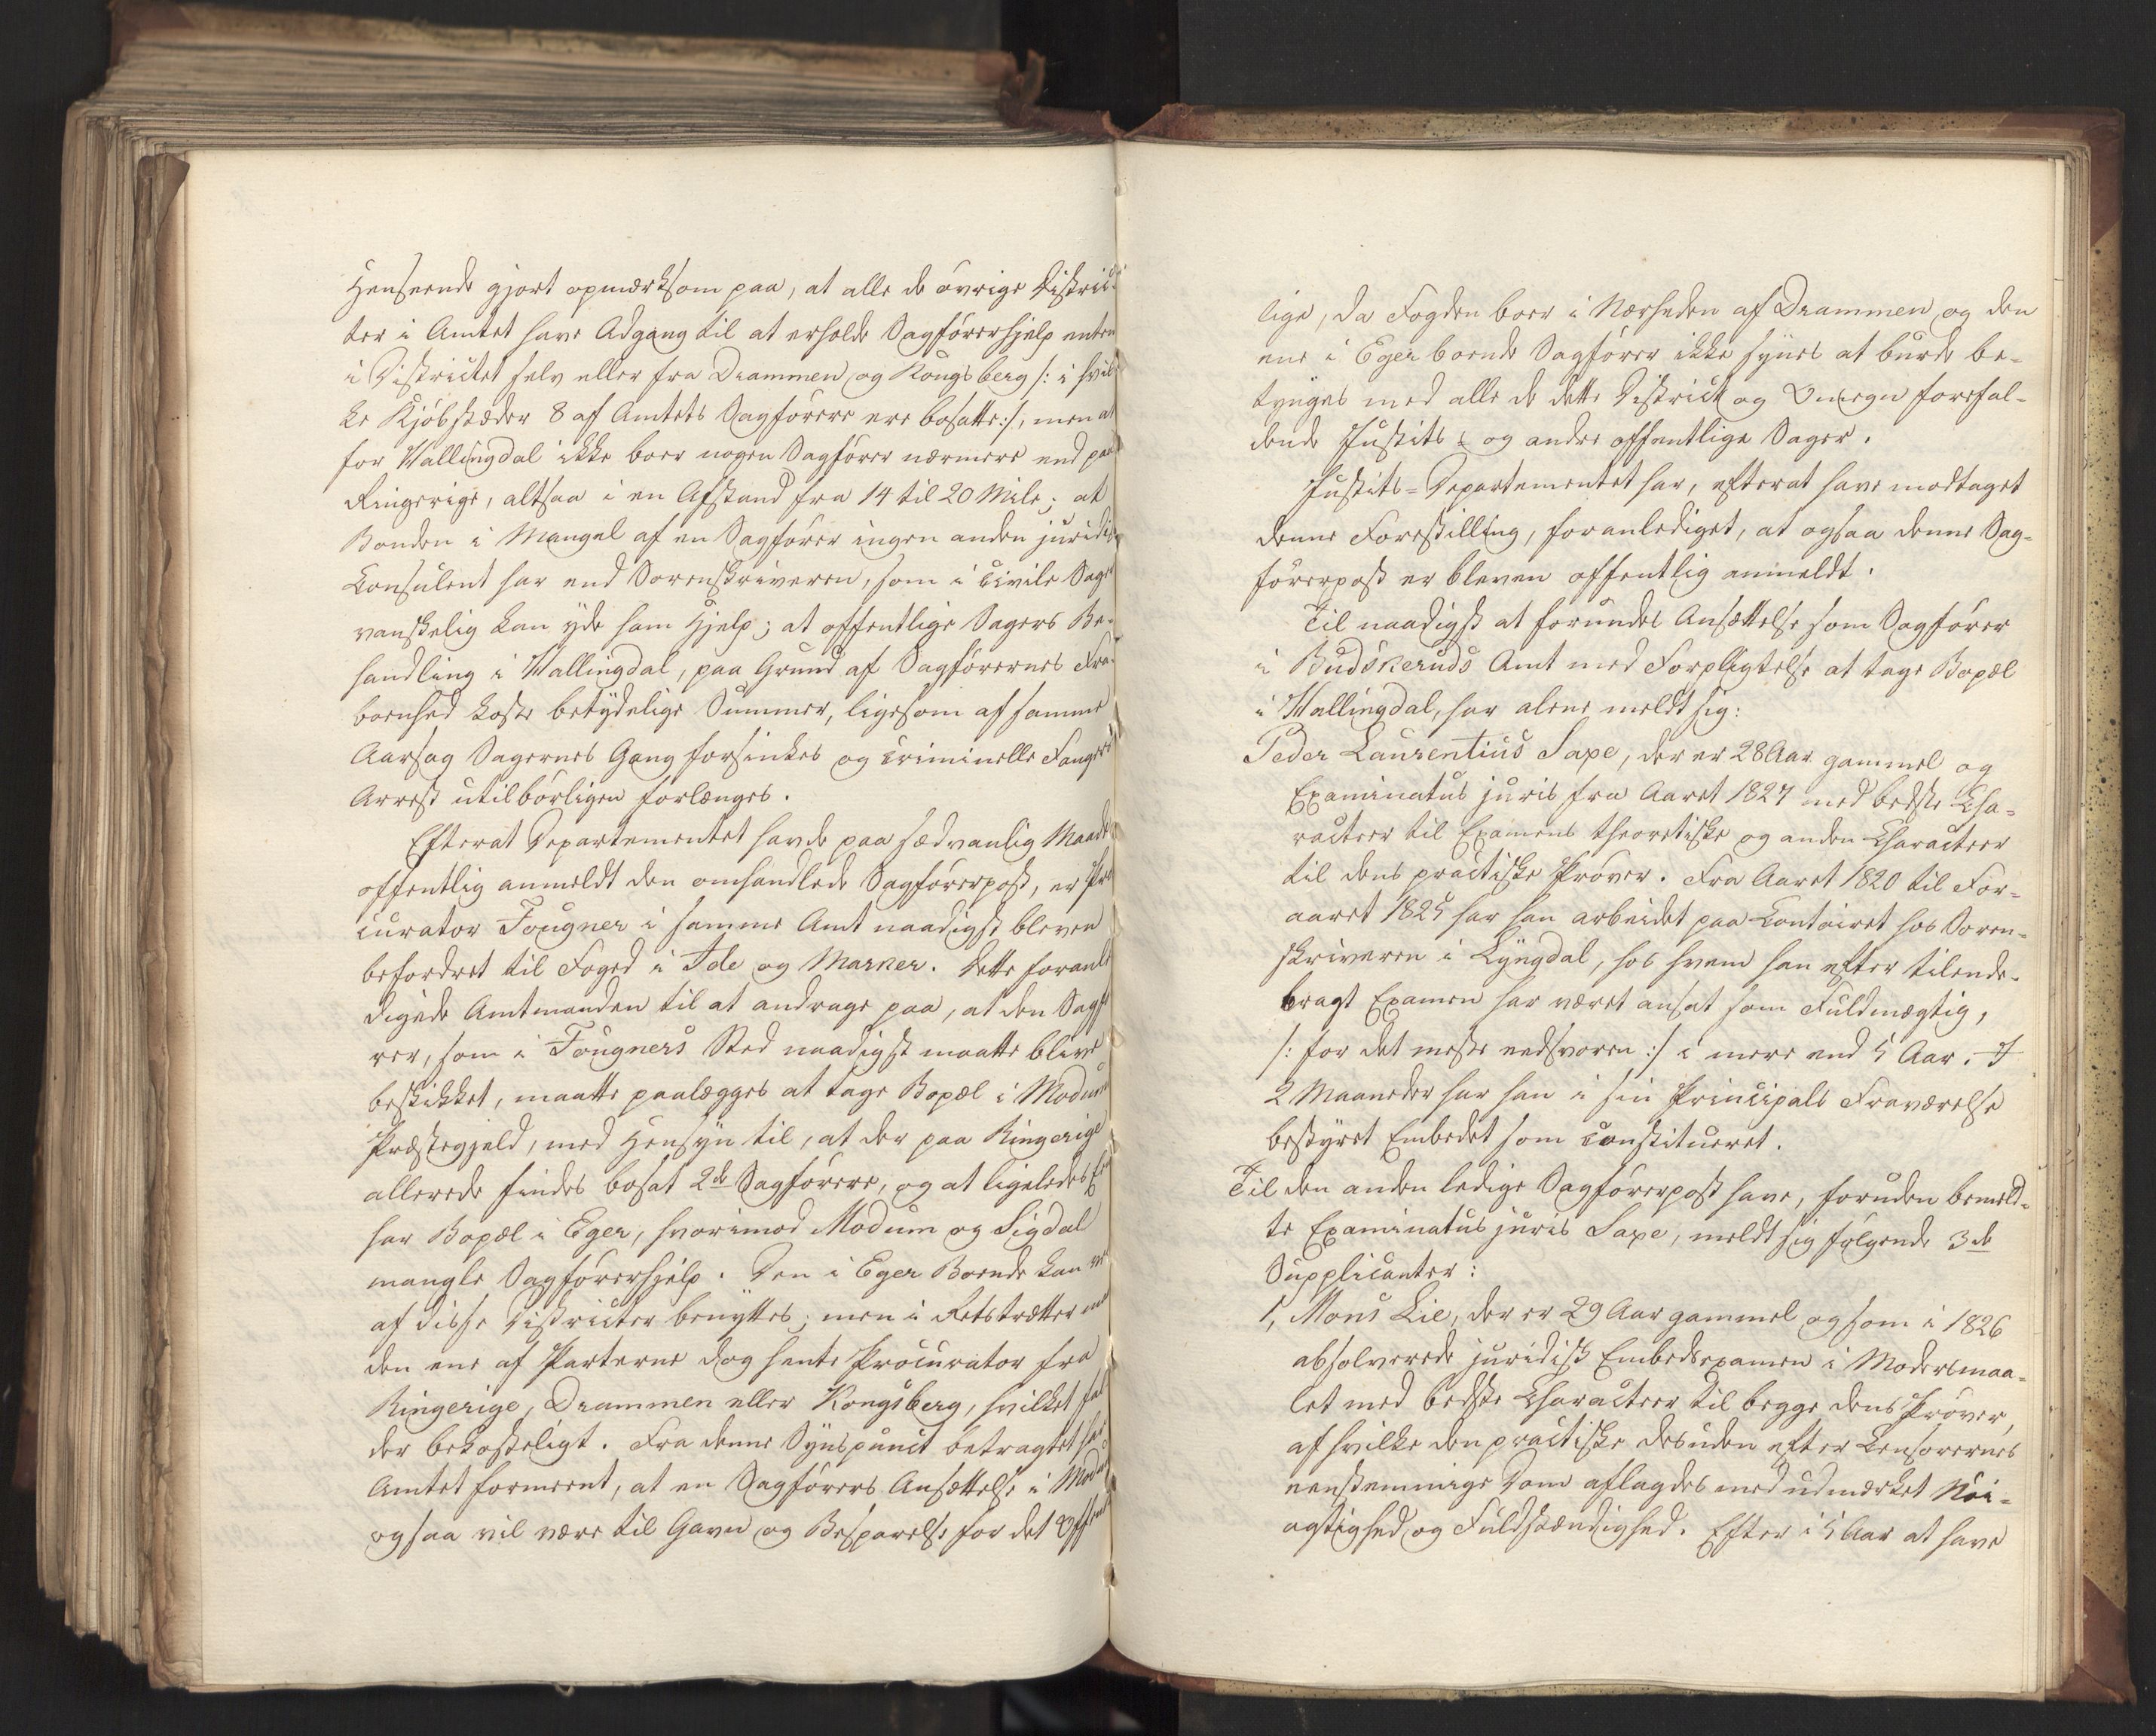 Henseende gjort opmærksom paa, at alle de øvrige Distric-
ter i Amtet have Adgang til at erholde Sagførerhjelp enten
i Districtet selv eller fra Drammen og Kongsberg /: i hvil
ke Kjøbstæder 8 af Amtets Sagførere ere bosatte :/, men at
for Hallingdal ikke boer nogen Sagfører nærmere end paa
Ringerige, altsaa i en Afstand fra 14 til 20 Mile; at
Bonden i Mangel af en Sagfører ingen anden juridis
Consulent har end Sorenskriveren, som i civile Sager
vanskelig kan yde ham Hjelp; at offentlige Sagers Be-
handling i Hallingdal, paa Grund af Sagførernes Fra-
boenhed koste betydelige Summer, ligesom af samme
Aarsag Sagernes Gang forsinkes og criminelle Fangers
Arrest utilbørligen forlænges.
Efterat Departementet havde paa sædvanlig Maade
offentlig anmeldt den omhandlede Sagførerpost, er Pro
curator Fougner i samme Amt naadigst bleven
befordret til Foged i Ide og Marker. Dette foranle
digede Amtmanden til at andrage paa, at den Sagfø
rer, som i Fougners Sted naadigst maatte blive
beskikket, maatte paalægges at tage Bopæl i Modum
Præstegjeld, med Hensyn til, at der paa Ringerige
allerede findes bosat 2de Sagførere, og at ligeledes Een
har Bopæl i Eger, hvorimod Modum og Sigdal
mangle Sagførerhjelp. Den i Eger Boende kan vel
af disse Districter benyttes; men i Retstrætter maa
den ene af Parterne dog hente Procurator fra
Ringerige, Drammen eller Kongsberg, hvilket fal
der bekosteligt. Fra denne Synspunct betragtet har
Amtet formeent, at en Sagførers Ansættelse i Modum
ogsaa vil være til Gavn og Besparelse for det Offent
lige, da Fogden boer i Nærheden af Drammen og den
ene i Eger boende Sagfører ikke synes at burde be-
tynges med alle de dette District og Omegn forefal-
dende Justits- og andre offentlige Sager.
Justits-Departementet har, efterat have modtaget
denne Forestilling, foranlediget, at ogsaa denne Sag-
førerpost er bleven offentlig anmeldt.
Til naadigst at forundes Ansættelse som Sagfører
i Budskeruds Amt med Forpligtelse at tage Bopæl
i Hallingdal, har alene meldt sig:
Peder Laurentius Saxe, der er 28 Aar gammel og
Examinatus juris fra Aaret 1827 med bedste Cha-
racteer til Examens theoretiske og anden Characteer
til dens practiske Prøver. Fra Aaret 1820 til For-
aaret 1825 har han arbeidet paa Contoiret hos Soren-
skriveren i Lyngdal, hos hvem han efter tilende-
bragt Examen har været ansat som Fuldmægtig,
/: for det meste eedsvoren :/ i mere end 5 Aar. I
2 Maaneder har han i sin Principals Fraværelse
bestyret Embedet som constitueret.
Til den anden ledige Sagførerpost have, foruden bemeld-
te Examinatus juris Saxe, meldt sig følgende 3de
Supplicanter:
1, Mons Lie, der er 29 Aar gammel og som i 1826
absolverede juridisk Embedsexamen i Modersmaa-
let med bedste Characteer til begge dens Prøver,
af hvilke den practiske desuden efter Censorernes
eenstemmige Dom aflagdes med udmærket Nøi-
agtighed og Fuldstændighed. Efter i 5 Aar at have